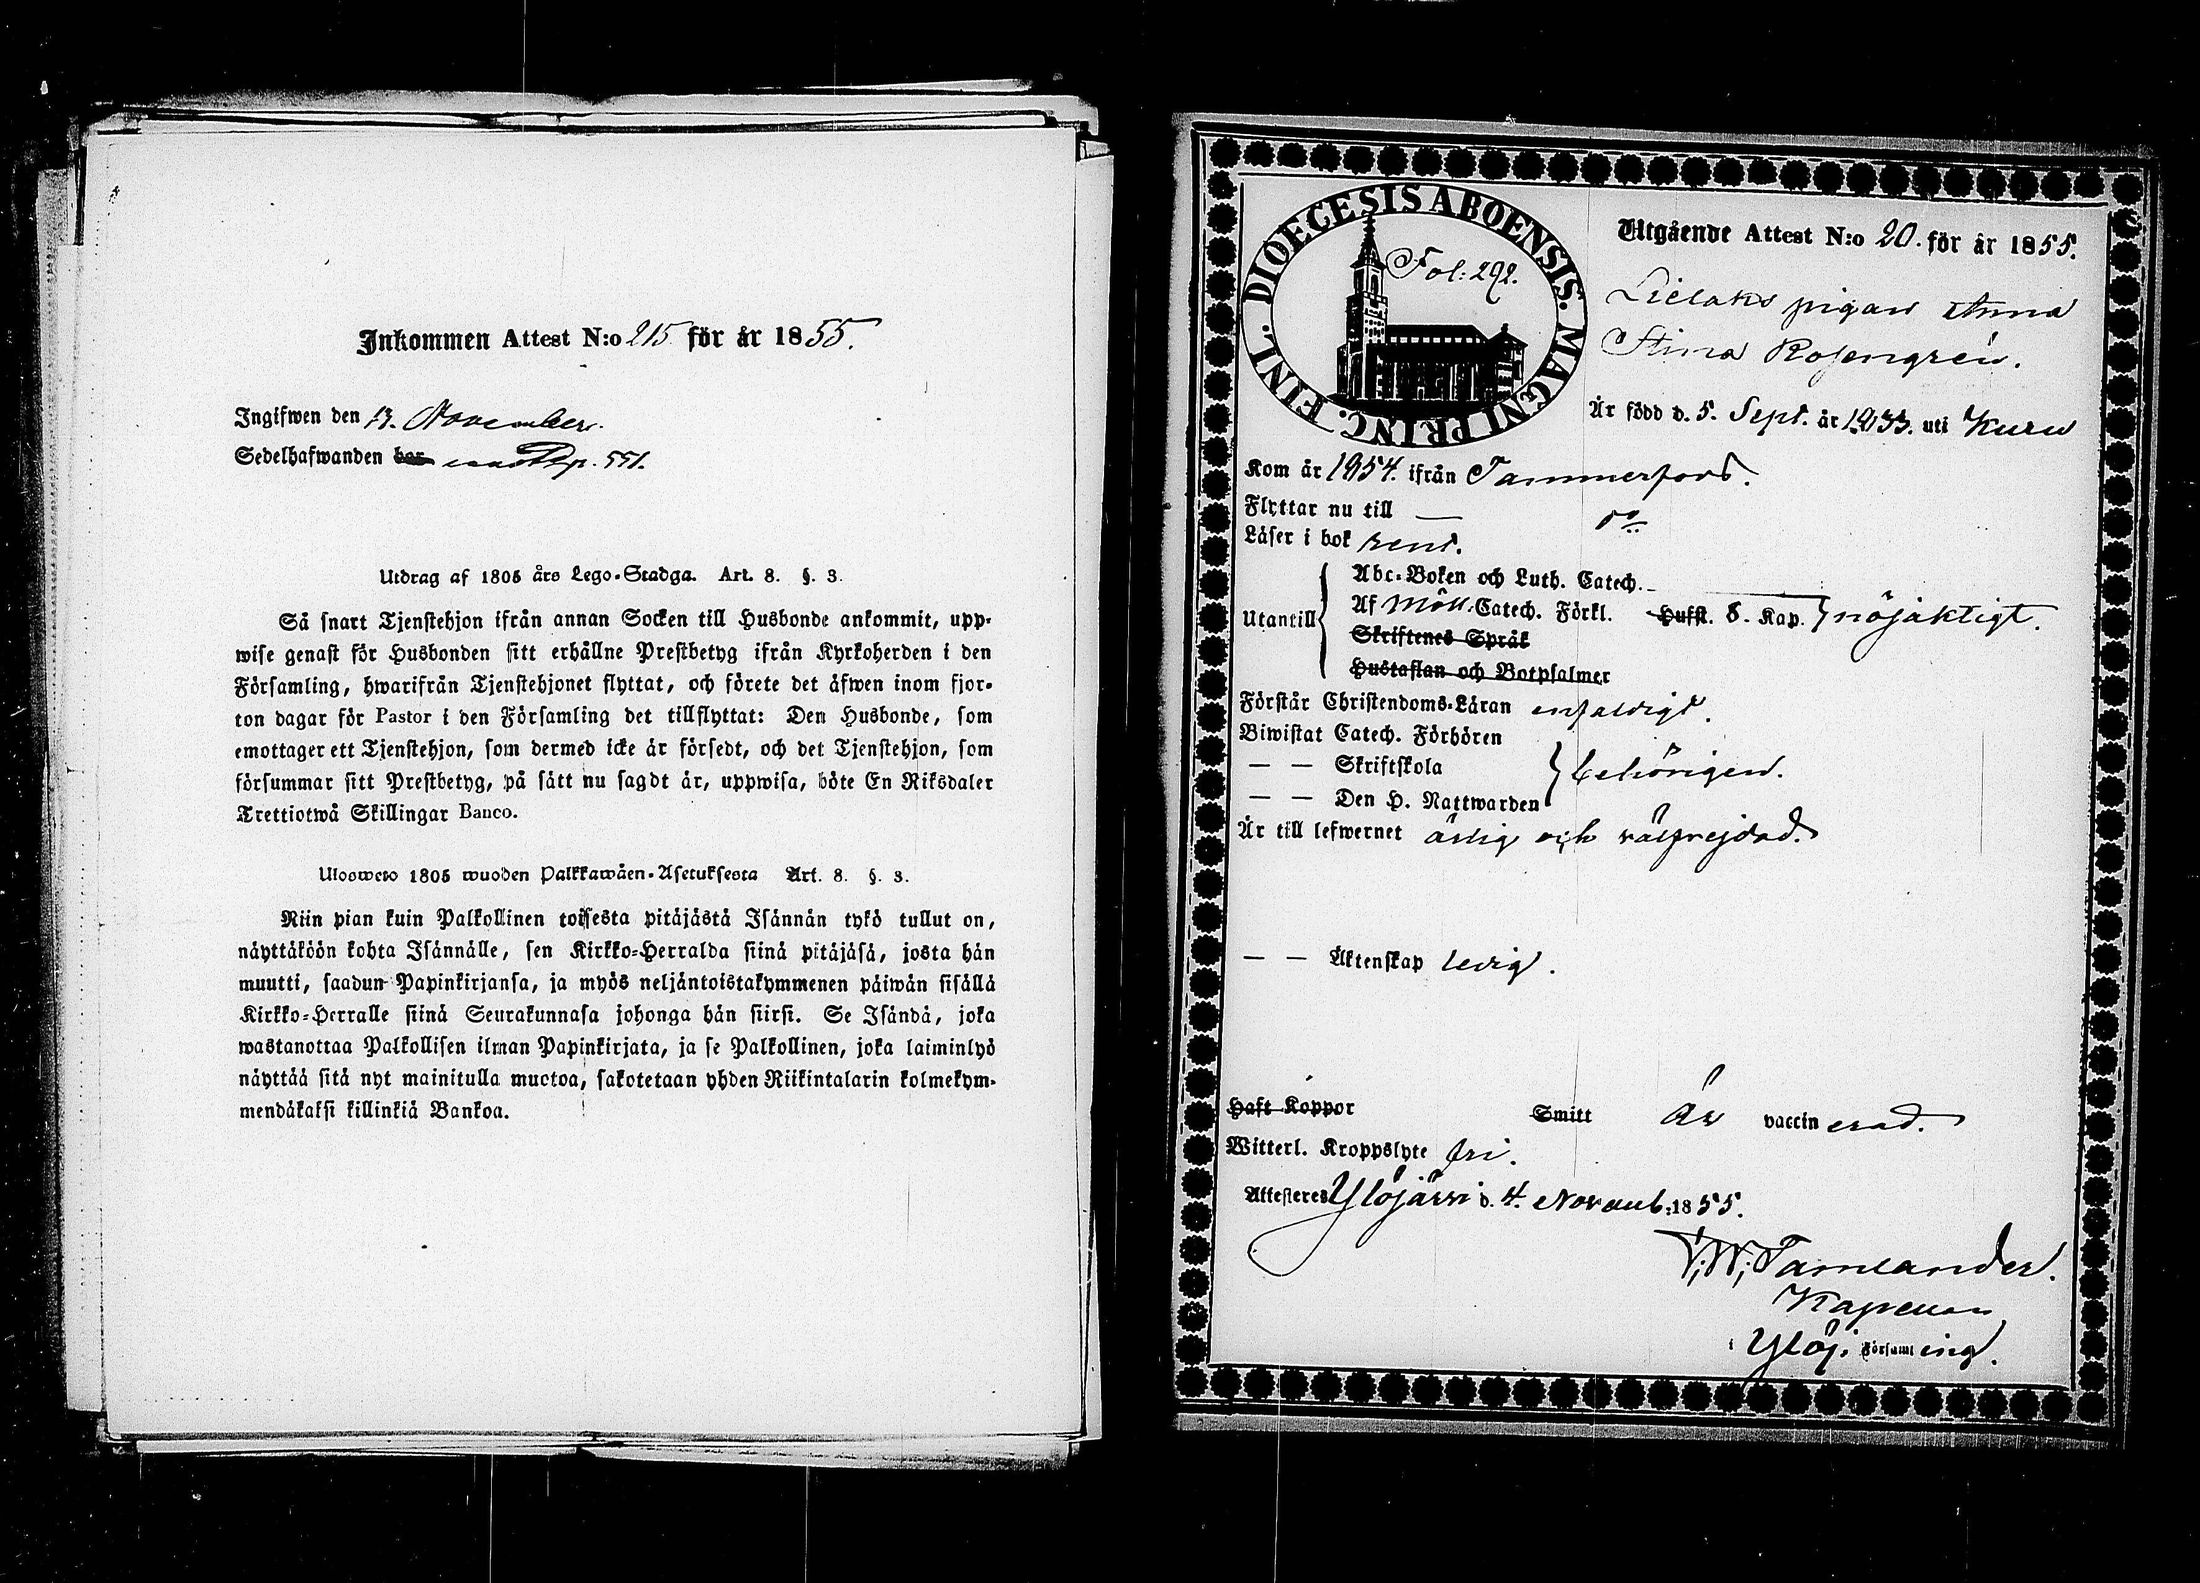 Inkommen Attest N:o 215 för år 1855.
Ingifwen den 13. November.
Sedelhafwanden bor pag. 551.
Utdrag af 1805 års Lego-Stadga. Art. 8. §. 3.
Så snart Tjenstehjon ifrån annan Socken till Husbonde ankommit, upp-
wise genast för Husbonden sitt erhållne Prestbetyg ifrån Kyrkoherden i den
Församling, hwarifrån Tjenstehjonet flyttat, och förete det äfwen inom fjor-
ton dagar för Pastor i den Församling det tillflyttat: Den Husbonde, som
emottager ett Tjenstehjon, som dermed icke är försedt, och det Tjenstehjon, som
försummar sitt Prestbetyg, på sätt nu sagdt är, uppwisa, böte En Riksdaler
Trettiotwå Skillingar Banco.
Ulosweto 1805 wuoden Palkkawäen-Asetuksesta Art. 8. §. 3.
Niin pian kuin Palkollinen toisesta pitäjästä Isännän tykö tullut on,
näyttäköön kohta Isännälle, sen Kirkko-Herralda siinä pitäjäsä, josta hän
muutti, saadun Papinkirjansa, ja myös neljäntoistakymmenen päiwän sisällä
Kirkko-Herralle siinä Seurakunnasa johonga hän siirsi. Se Isändä, joka
wastanottaa Palkollisen ilman Papinkirjata, ja se Palkollinen, joka laiminlyö
näyttää sitä nyt mainitulla muotoa, sakotetaan yhden Riikintalarin kolmekym-
mendäkaksi killinkiä Bankoa.
DIOECESIS ABOENSIS. MAGNI PRINC. FINL.
Fol: 292.
Utgående Attest N:o 20. för år 1855.
Lielaks pigan Anna
Stina Rosengrén.
Är född d. 5. Sept. år 1833. uti Kuru
Kom år 1854. ifrån Tammerfors.
Flyttar nu till — do
Läser i bok rent.
Utantill
Abc-Boken och Luth. Catech.
Af Möll. Catech. Förkl. Hufst. 8. Kap. nöjaktigt.
Skriftenes Språk
Hustaflan och Botpsalmer
Förstår Christendoms-Läran enfaldigt.
Biwistat Catech. Förhören
— — Skriftskola
— — Den H. Nattwarden behörigen.
Är till lefwernet ärlig och välfrejdad.
— — Äktenskap ledig.
Haft Koppor Smitt Är vaccinerad.
Witterl. Kroppslyte fri.
Attesteres Ylöjärvi d. 4. Novemb: 1855.
V. W. Tamlander.
Kapellan
i Ylöj. Församling.